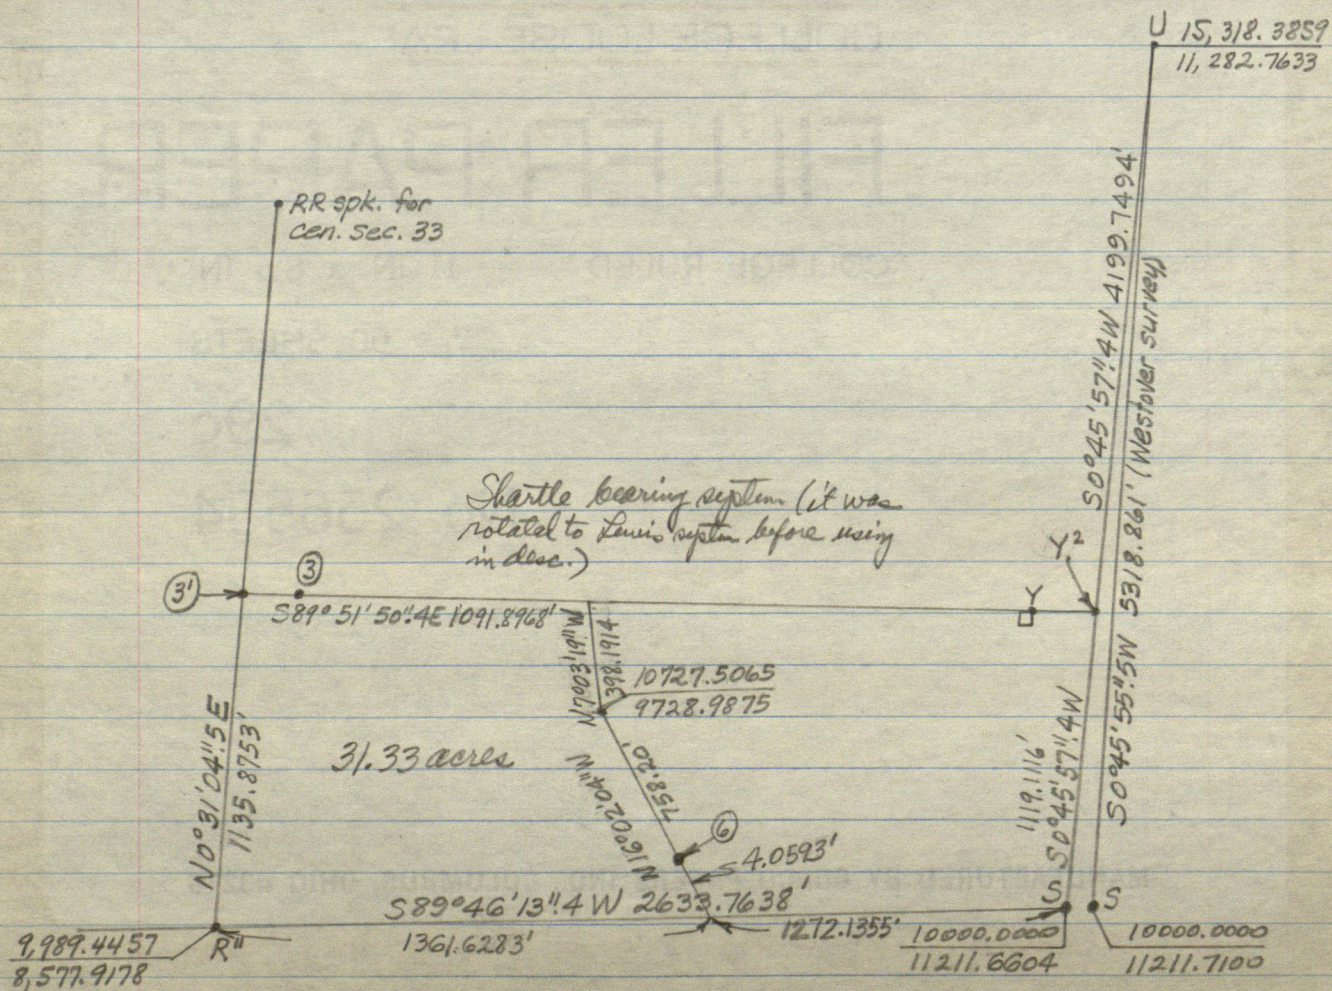 U 15,318.3859
11,282.7633
RR spk. for
cen. sec. 33
S0°45'57".4W 4199.7494'
S0°45'55".5W 5318.861' (Westover survey)
Shartle bearing system (it was
rotated to Lewis system before using
in desc.)
Y²
3' 3
Y
S89°51'50".4E 1091.8968'
N7°03'19"W
398.1914
10727.5065
9728.9875
N0°31'04".5E
1135.8753'
31.33 acres
758.20'
N16°02'04"W
6
4.0593'
1119.1116'
S0°45'57".4W
S89°46'13".4W 2633.7638'
S S
1361.6283'
1272.1355'
R"
9,989.4457
8,577.9178
10000.0000
11211.6604
10000.0000
11211.7100